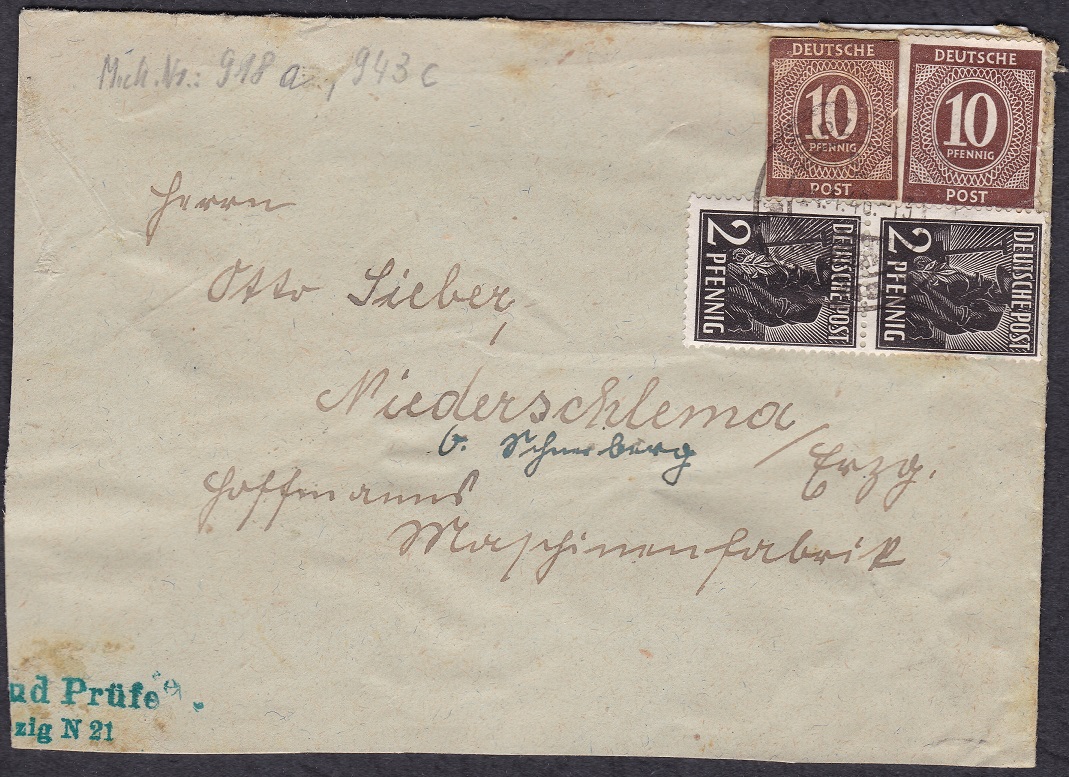 Mich.Nr.: 918 a, 943 c
DEUTSCHE
10
PFENNIG
POST
DEUTSCHE
10
PFENNIG
POST
2
PFENNIG
DEUTSCHE POST
2
PFENNIG
DEUTSCHE POST
Herrn
Otto Sieber,
Niederschlema
b. Schneeberg / Erzg.
Hoffmanns
Maschinenfabrik
ud Prüfe
zig N 21